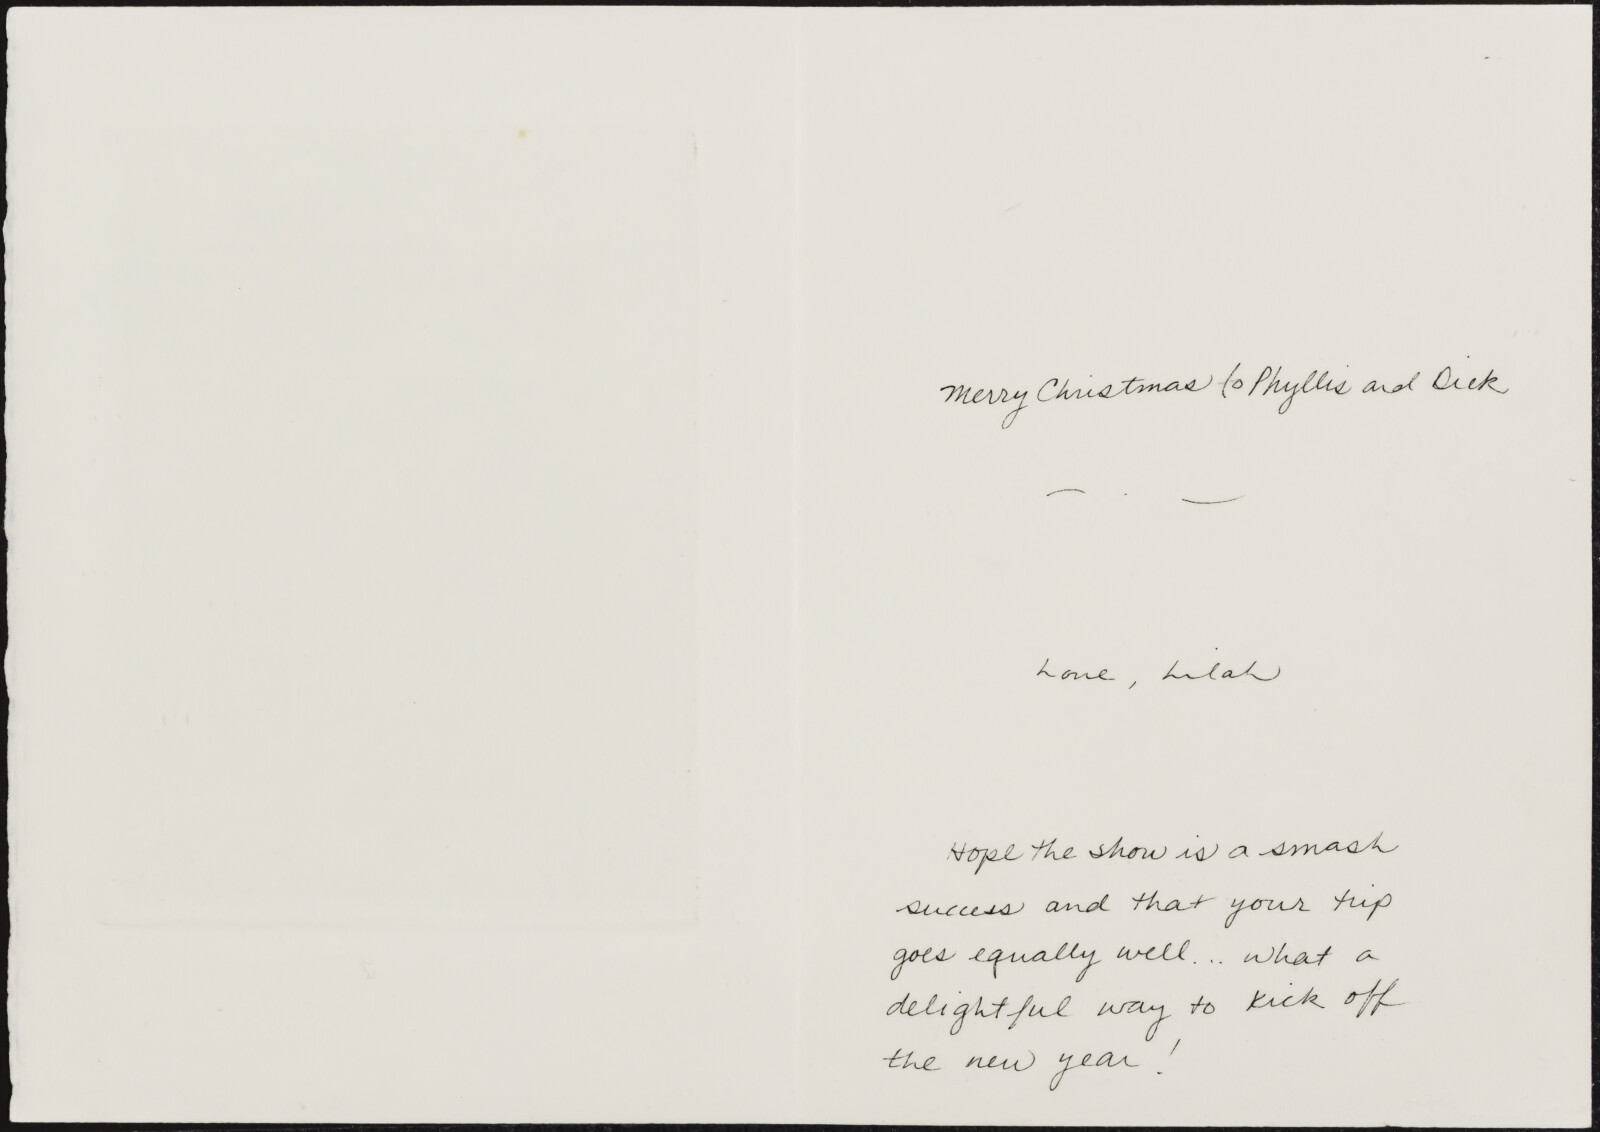 Merry Christmas to Phyllis and Dick
Love, Lilah
Hope the show is a smash
success and that your trip
goes equally well... what a
delightful way to kick off
the new year!